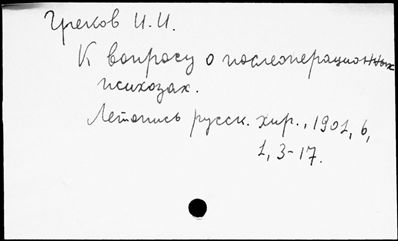 Греков И.И.
К вопросу о послеоперационных
психозах.
Летопись русск. хир., 1901, 6,
1, 3-17.